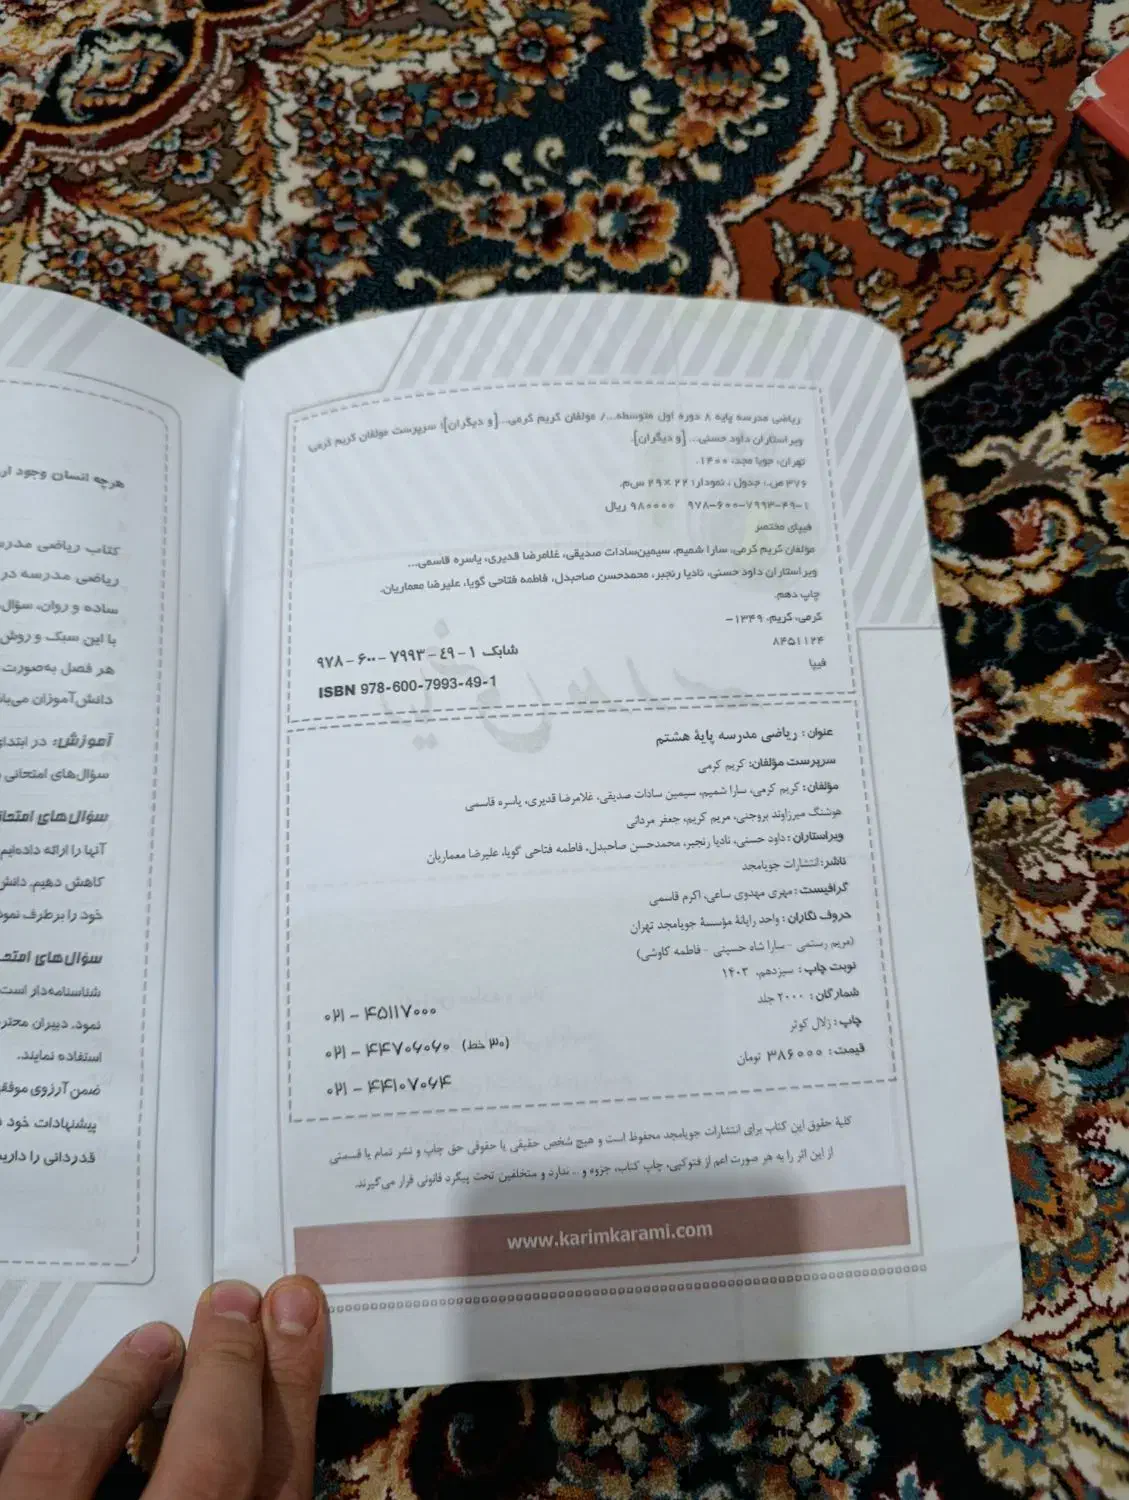 ریاضی مدرسه پایه ۸ دوره اول متوسطه.../ مولفان کریم کرمی...[و دیگران]؛ سرپرست مولفان کریم کرمی
ویراستاران داود حسنی... [و دیگران].
تهران: جویا مجد، ۱۴۰۰.
۳۷۶ ص.: جدول ، نمودار؛ ۲۲ ×۲۹ س‌م.
۹۷۸-۶۰۰-۷۹۹۳-۴۹-۱ ۹۸۰۰۰۰ ریال
فیپای مختصر
مؤلفان کریم کرمی، سارا شمیم، سیمین‌سادات صدیقی، غلامرضا قدیری، یاسره قاسمی...
ویراستاران داود حسنی، نادیا رنجبر، محمدحسن صاحبدل، فاطمه فتاحی گویا، علیرضا معماریان.
چاپ دهم.
کرمی، کریم، ۱۳۴۹-
۸۴۵۱۱۲۴
فیپا
شابک ۱ - ۴۹ - ۷۹۹۳ - ۶۰۰ - ۹۷۸
ISBN 978-600-7993-49-1
عنوان : ریاضی مدرسه پایهٔ هشتم
سرپرست مؤلفان: کریم کرمی
مؤلفان: کریم کرمی، سارا شمیم، سیمین سادات صدیقی، غلامرضا قدیری، یاسره قاسمی
هوشنگ میرزاوند بروجنی، مریم کریم، جعفر مردانی
ویراستاران : داود حسنی، نادیا رنجبر، محمدحسن صاحبدل، فاطمه فتاحی گویا، علیرضا معماریان
ناشر: انتشارات جویامجد
گرافیست : مهری مهدوی ساعی، اکرم قاسمی
حروف نگاران : واحد رایانهٔ مؤسسهٔ جویامجد تهران
(مریم رستمی - سارا شاه حسینی - فاطمه کاوشی)
نوبت چاپ : سیزدهم، ۱۴۰۳
شمارگان : ۲۰۰۰ جلد
چاپ : زلال کوثر
قیمت : ۳۸۶۰۰۰ تومان
۰۲۱ - ۴۵۱۱۷۰۰۰
۰۲۱ - ۴۴۷۰۶۰۶۰ (۳۰ خط)
۰۲۱ - ۴۴۱۰۷۰۶۴
کلیهٔ حقوق این کتاب برای انتشارات جویامجد محفوظ است و هیچ شخص حقیقی یا حقوقی حق چاپ و نشر تمام یا قسمتی
از این اثر را به هر صورت اعم از فتوکپی، چاپ کتاب، جزوه و... ندارد و متخلفین تحت پیگرد قانونی قرار می‌گیرند.
www.karimkarami.com
هرچه انسان وجود
کتاب ریاضی
ریاضی مدرسه در
ساده و روان، سؤال
با این سبک و روش
هر فصل به‌صورت
دانش‌آموزان
آموزش: در
سؤال‌های امتحانی
سؤال‌های
آنها را ارائه داده‌ایم
کاهش دهیم. دانش
خود را برطرف
سؤال‌های
شناسنامه‌دار است
نمود. دبیران
استفاده نمایند.
ضمن آرزوی
پیشنهادات خود
قدردانی را